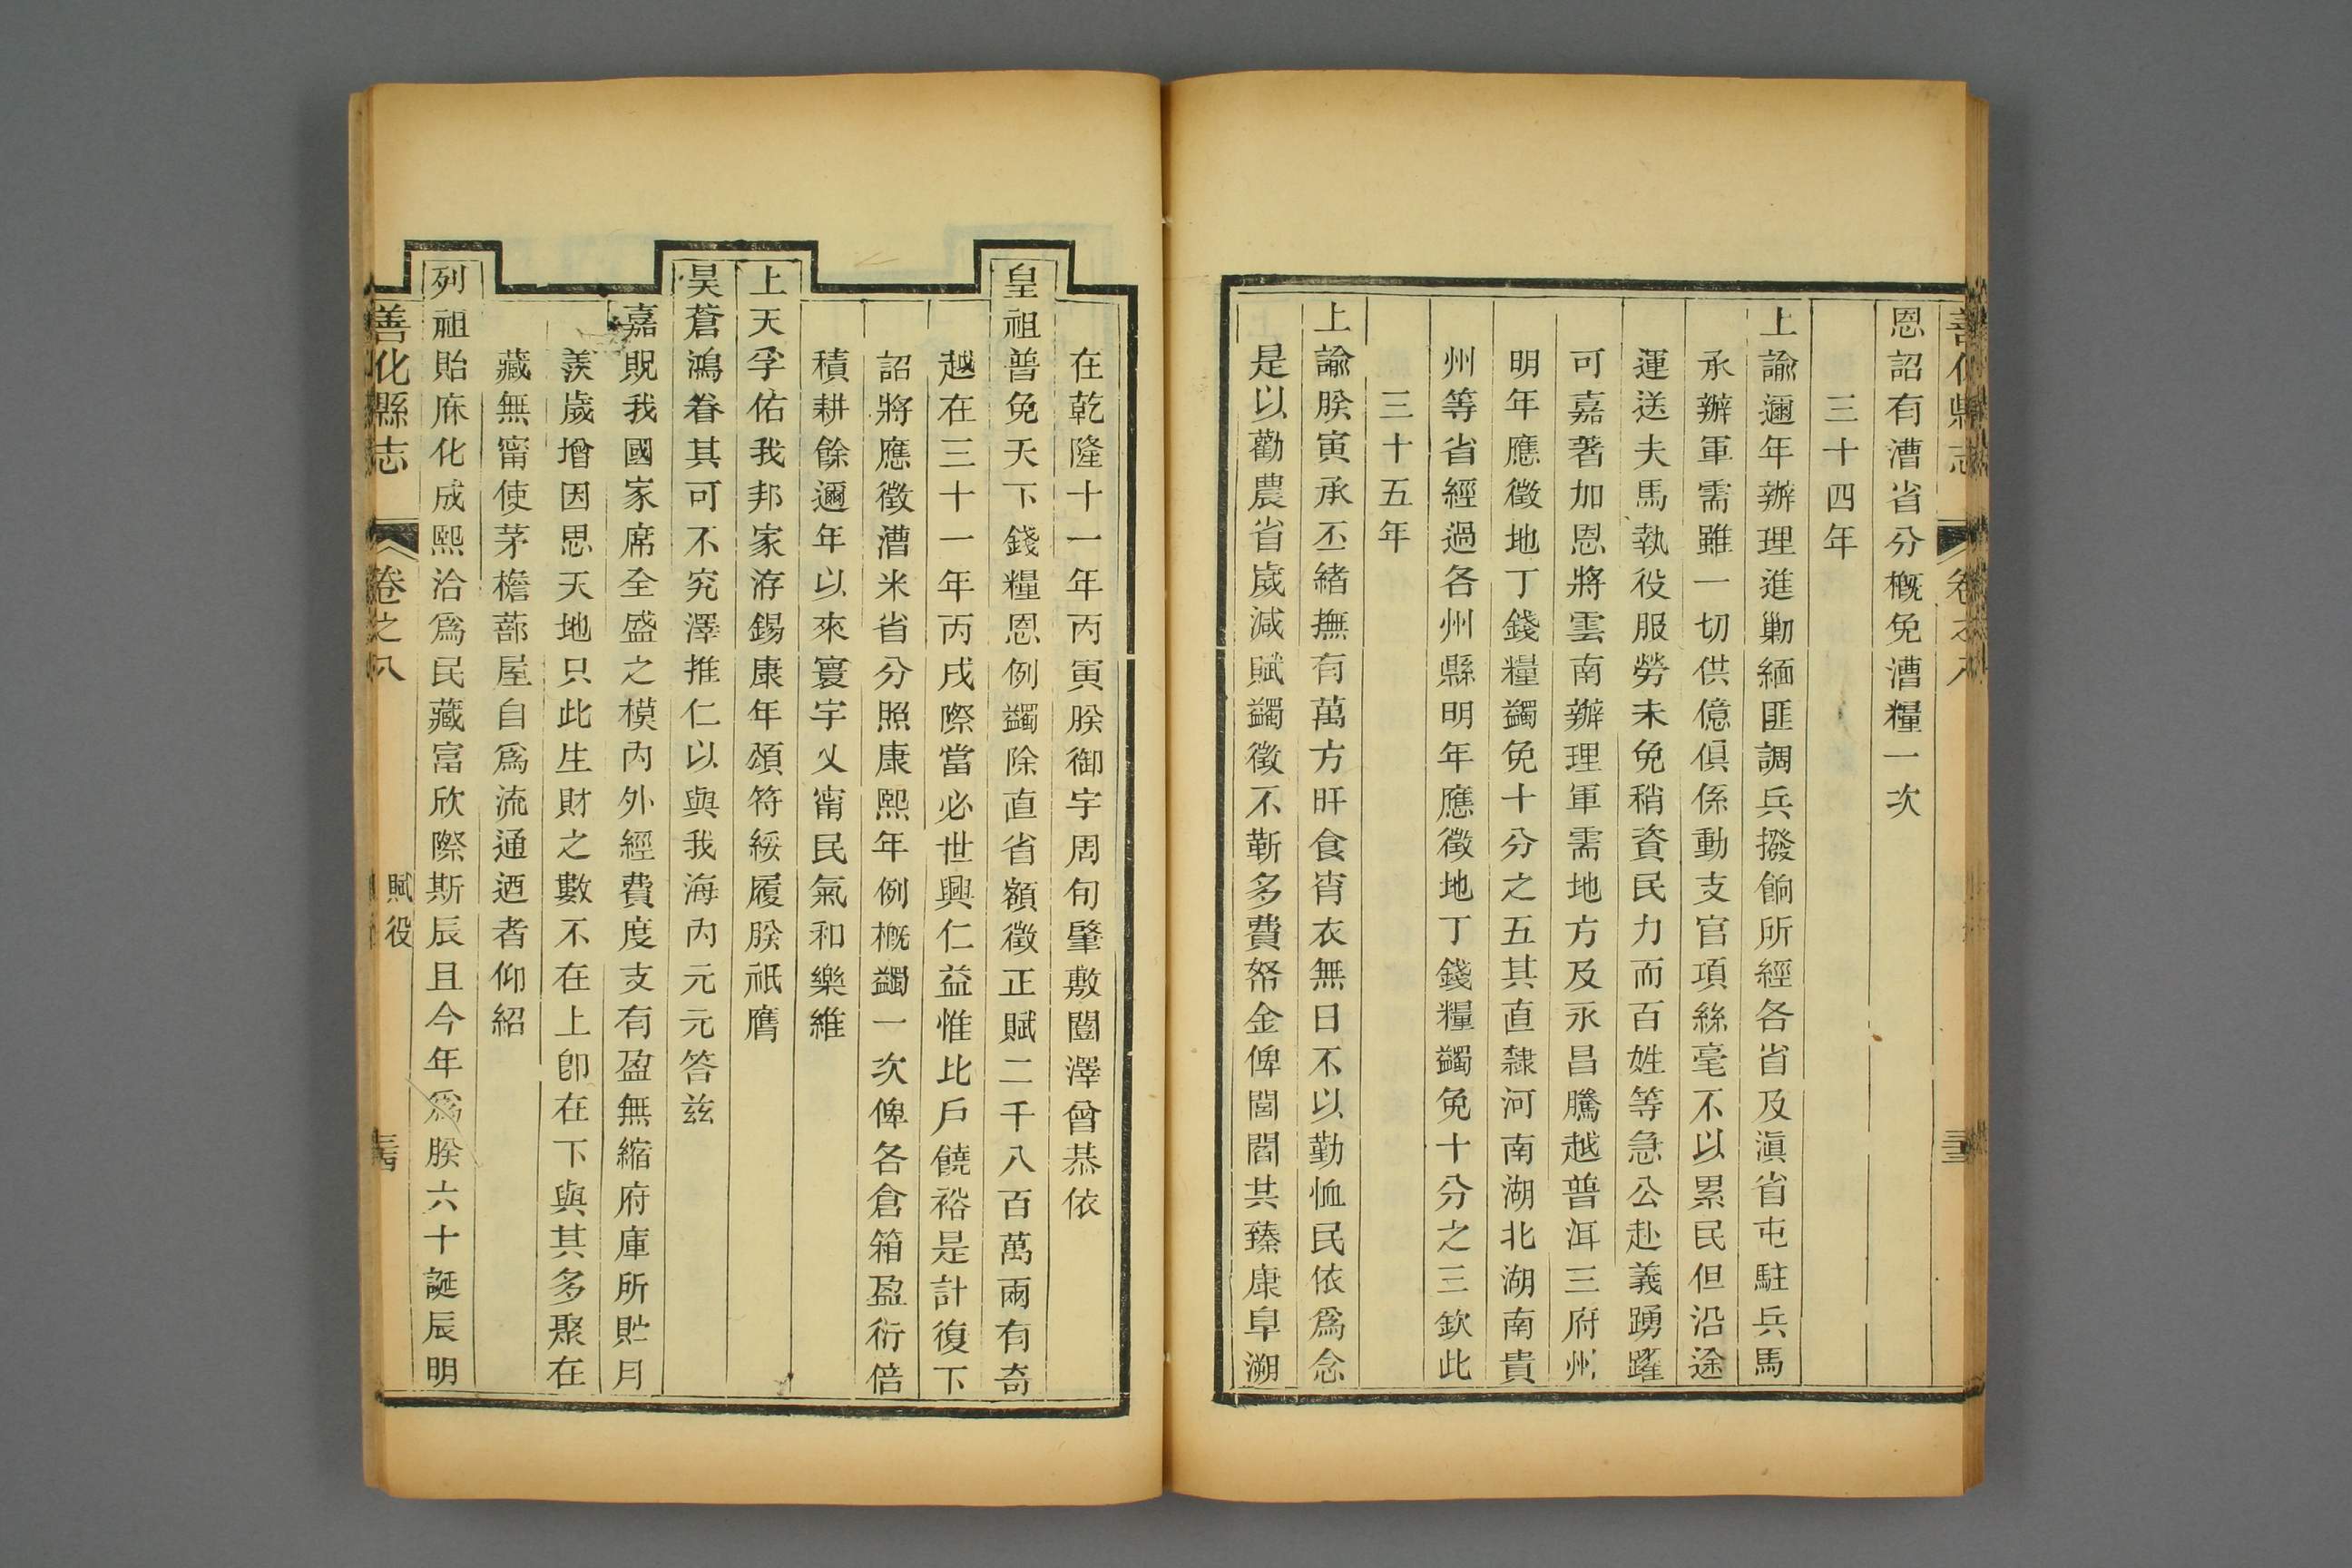 善化縣志 卷之八
恩詔有漕省分概免漕糧一次
三十四年
上諭邇年辦理進勦緬匪調兵撥餉所經各省及滇省屯駐兵馬
承辦軍需雖一切供億俱係動支官項絲毫不以累民但沿途
運送夫馬執役服勞未免稍資民力而百姓等急公赴義踴躍
可嘉著加恩將雲南辦理軍需地方及永昌騰越普洱三府州
明年應徵地丁錢糧蠲免十分之五其直隸河南湖北湖南貴
州等省經過各州縣明年應徵地丁錢糧蠲免十分之三欽此
三十五年
上諭朕寅承丕緒撫有萬方旰食宵衣無日不以勤恤民依爲念
是以勸農省歲減賦蠲徵不靳多費帑金俾閭閻共臻康阜溯
在乾隆十一年丙寅朕御宇周旬肇敷闓澤曾恭依
皇祖普免天下錢糧恩例蠲除直省額徵正賦二千八百萬兩有奇
越在三十一年丙戌際當必世興仁益惟比戶饒裕是計復下
詔將應徵漕米省分照康熙年例概蠲一次俾各倉箱盈衍倍
積耕餘邇年以來寰宇乂甯民氣和樂維
上天孚佑我邦家洊錫康年頌符綏履朕祇膺
昊蒼鴻眷其可不究澤推仁以與我海內元元答兹
嘉貺我國家席全盛之模內外經費度支有盈無縮府庫所貯月
羨歲增因思天地只此生財之數不在上卽在下與其多聚在
藏無甯使茅檐蔀屋自爲流通迺者仰紹
列祖貽庥化成熙洽爲民藏富欣際斯辰且今年爲朕六十誕辰明
善化縣志 卷之八 賦役